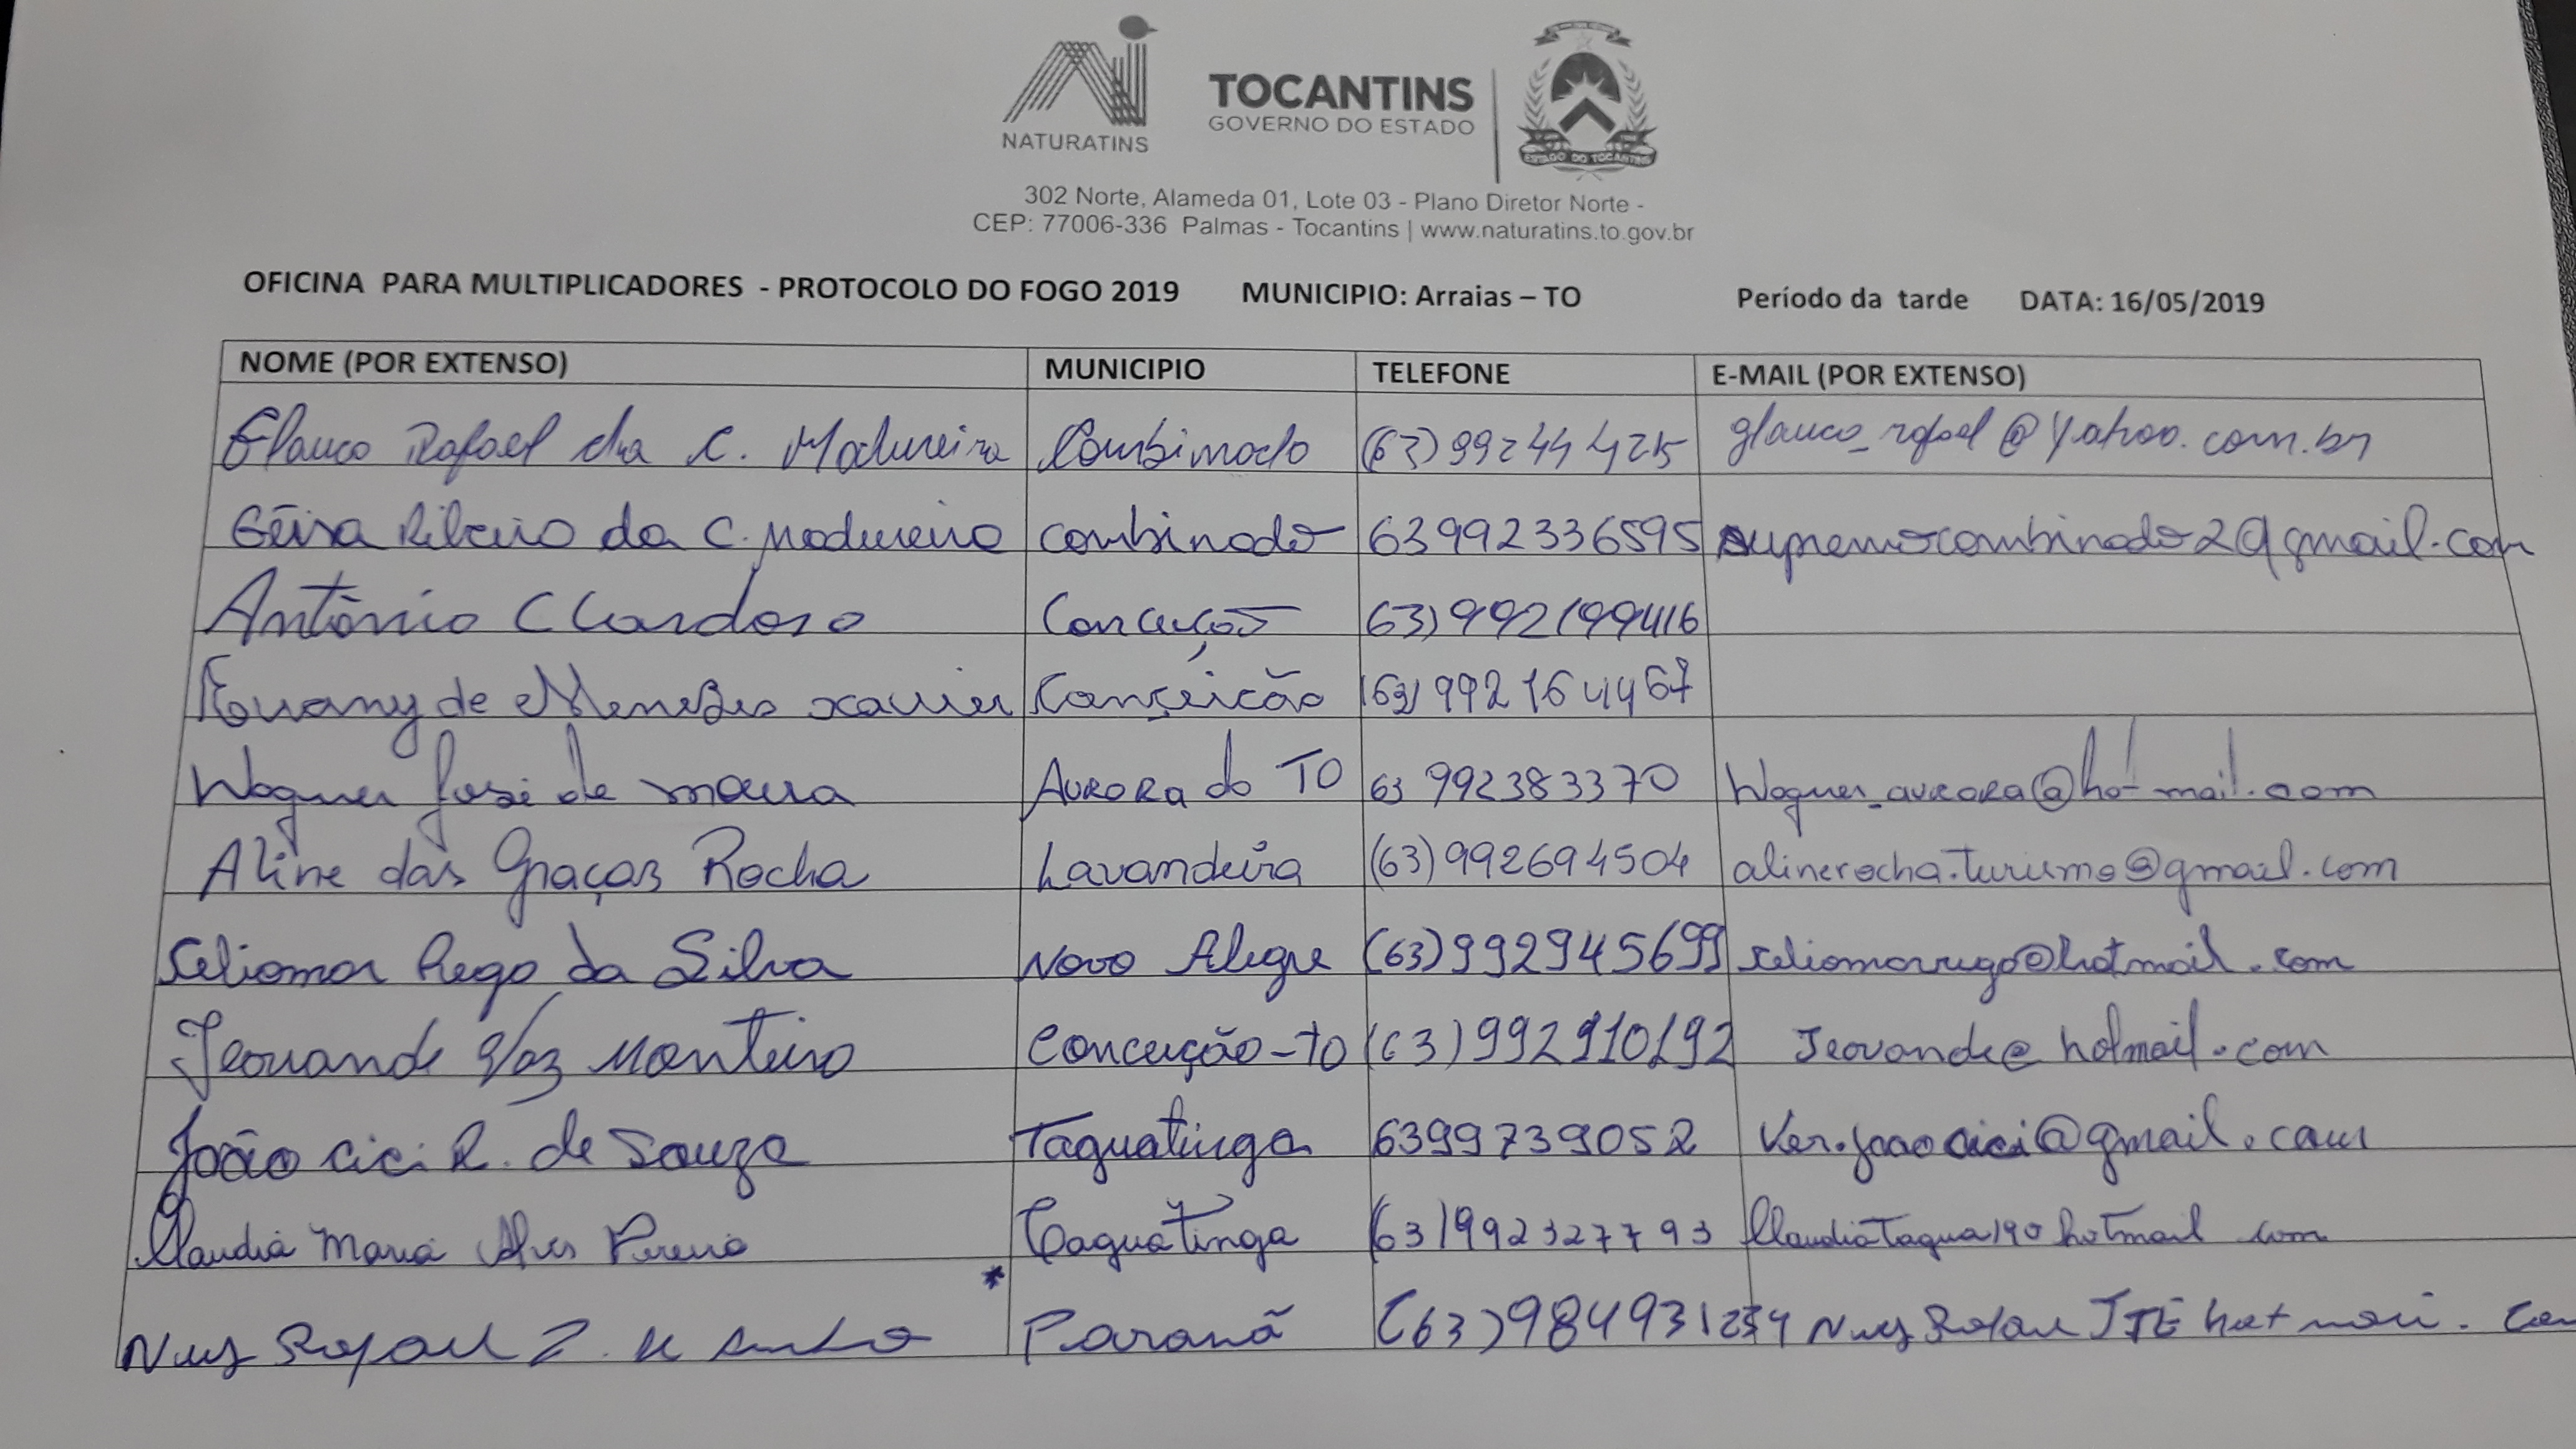 NATURATINS
TOCANTINS
GOVERNO DO ESTADO
ESTADO DO TOCANTINS
302 Norte, Alameda 01, Lote 03 - Plano Diretor Norte -
CEP: 77006-336 Palmas - Tocantins | www.naturatins.to.gov.br
OFICINA PARA MULTIPLICADORES - PROTOCOLO DO FOGO 2019 MUNICIPIO: Arraias – TO Período da tarde DATA: 16/05/2019
NOME (POR EXTENSO) MUNICIPIO TELEFONE E-MAIL (POR EXTENSO)
Glauco Rafael da C. Madureira Combinado (63) 992444425 glauco_rafael@yahoo.com.br
Géisa Ribeiro da C. Madureira combinado 63992336595 supremocombinado2@gmail.com
Antônio C Cardoso Conceição (63) 992199416
de Menezes xavier Conçeicão (63) 992164467
Wagner José de moura AURORA do TO 63 992383370 Wagner_aurora@hotmail.com
Aline das Graças Rocha Lavandeira (63) 992694504 alinerocha.turismo@gmail.com
Seliomar Rego da Silva Novo Alegre (63) 992945699 seliomarrego@hotmail.com
Jeovande Vaz Monteiro Conceição-to (63) 992910192 Jeovande@hotmail.com
João Cici R. de Souza Taguatinga 6399739052 Ver.joaocici@gmail.com
Claudia Maria Alves Pereira Taguatinga (63) 992327793 Claudiataqua190hotmail.com
* Rafael Paranã (63) 984931234